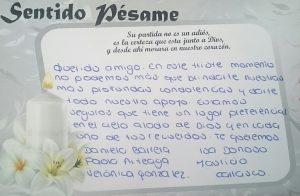 Sentido Pésame
Su partida no es un adiós,
es la certeza que esta junto a Dios,
y desde ahí morara en nuestro corazón.
Querido amigo. En este triste momento
no podemos más que brindarte nuestras
más profundas condolencias y darte
todo nuestro apoyo. Estamos
seguros que tiene un lugar preferencial
en el cielo al lado de Dios y en cada
uno de los recuerdos. Te queremos
Daniela Barrera
Paola Arteaga
Verónica González.